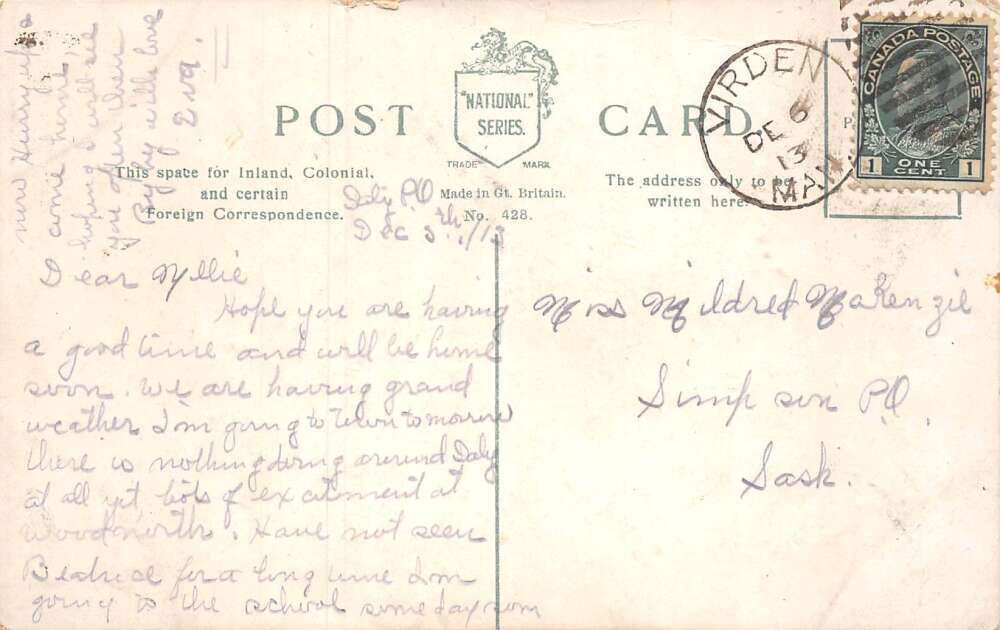 POST CARD
"NATIONAL"
SERIES.
TRADE MARK
This space for Inland, Colonial,
and certain
Foreign Correspondence.
Made in Gt. Britain.
No. 428.
The address only to be
written here.
VIRDEN
DE 6
13
MAN
CANADA POSTAGE
1 ONE CENT 1
Daly P.O
Dec 5th/13
Dear Nellie
Hope you are having
a good time and will be home
soon. We are having grand
weather I'm going to town tomorrow
there is nothing doing around Daly
at all yet, lots of excitement at
Woodnorth. Have not seen
Beatrice for a long time I'm
going to the school some day soon
now Hurry up &
come home,
hoping I will see
you then
Bye bye with love
Eva.
Miss Mildred McKenzie
Simpson P.O.
Sask.